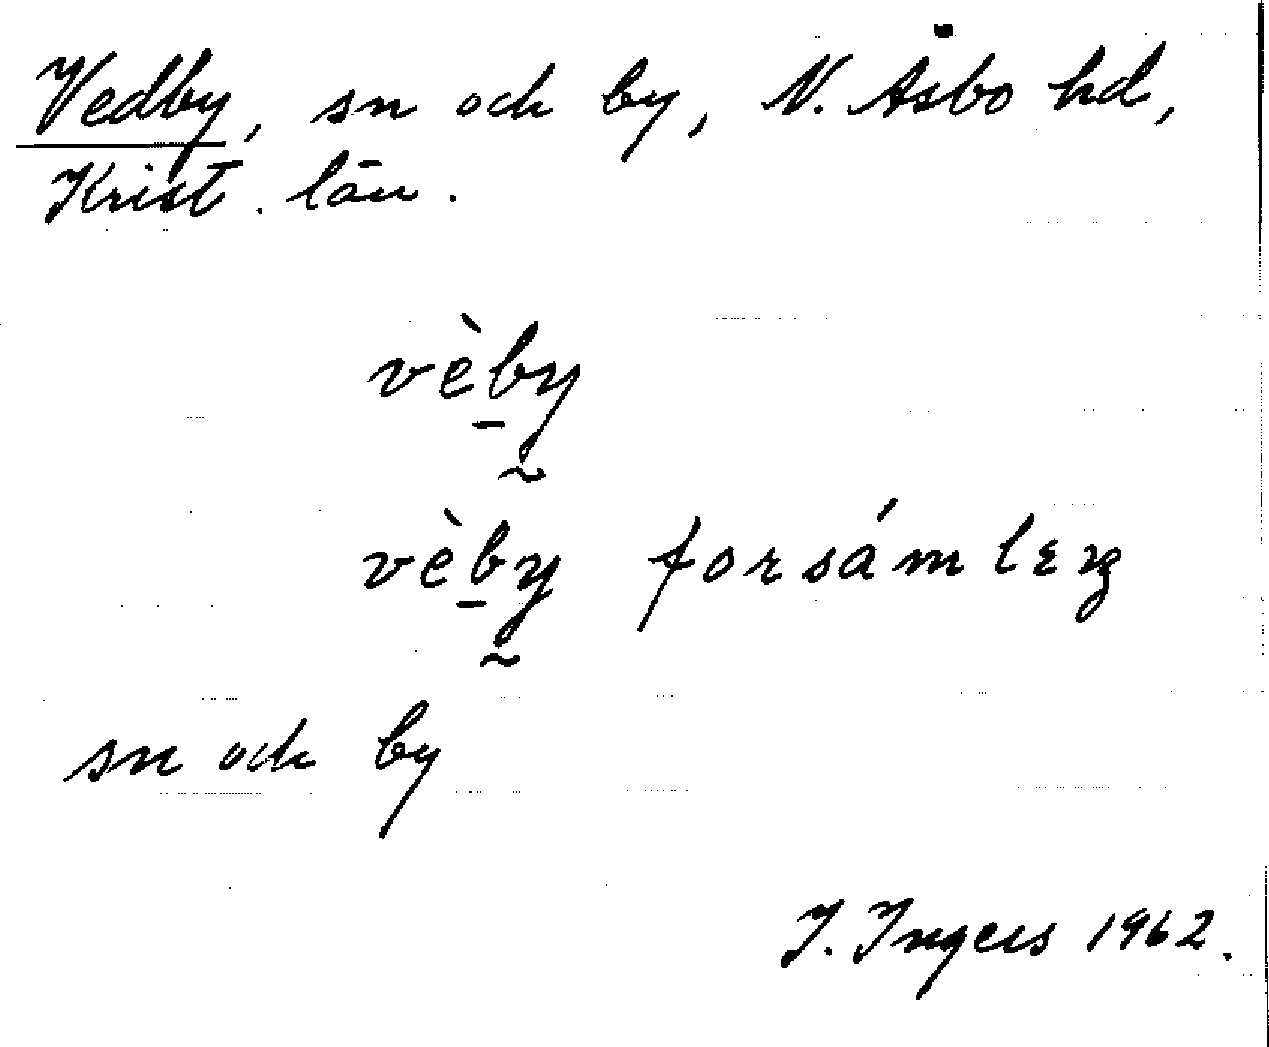 Vedby, sn och by, N. Åsbo hd,
Krist. län.
vèby
vèby forsámlıŋ
sn och by
I. Ingers 1962.